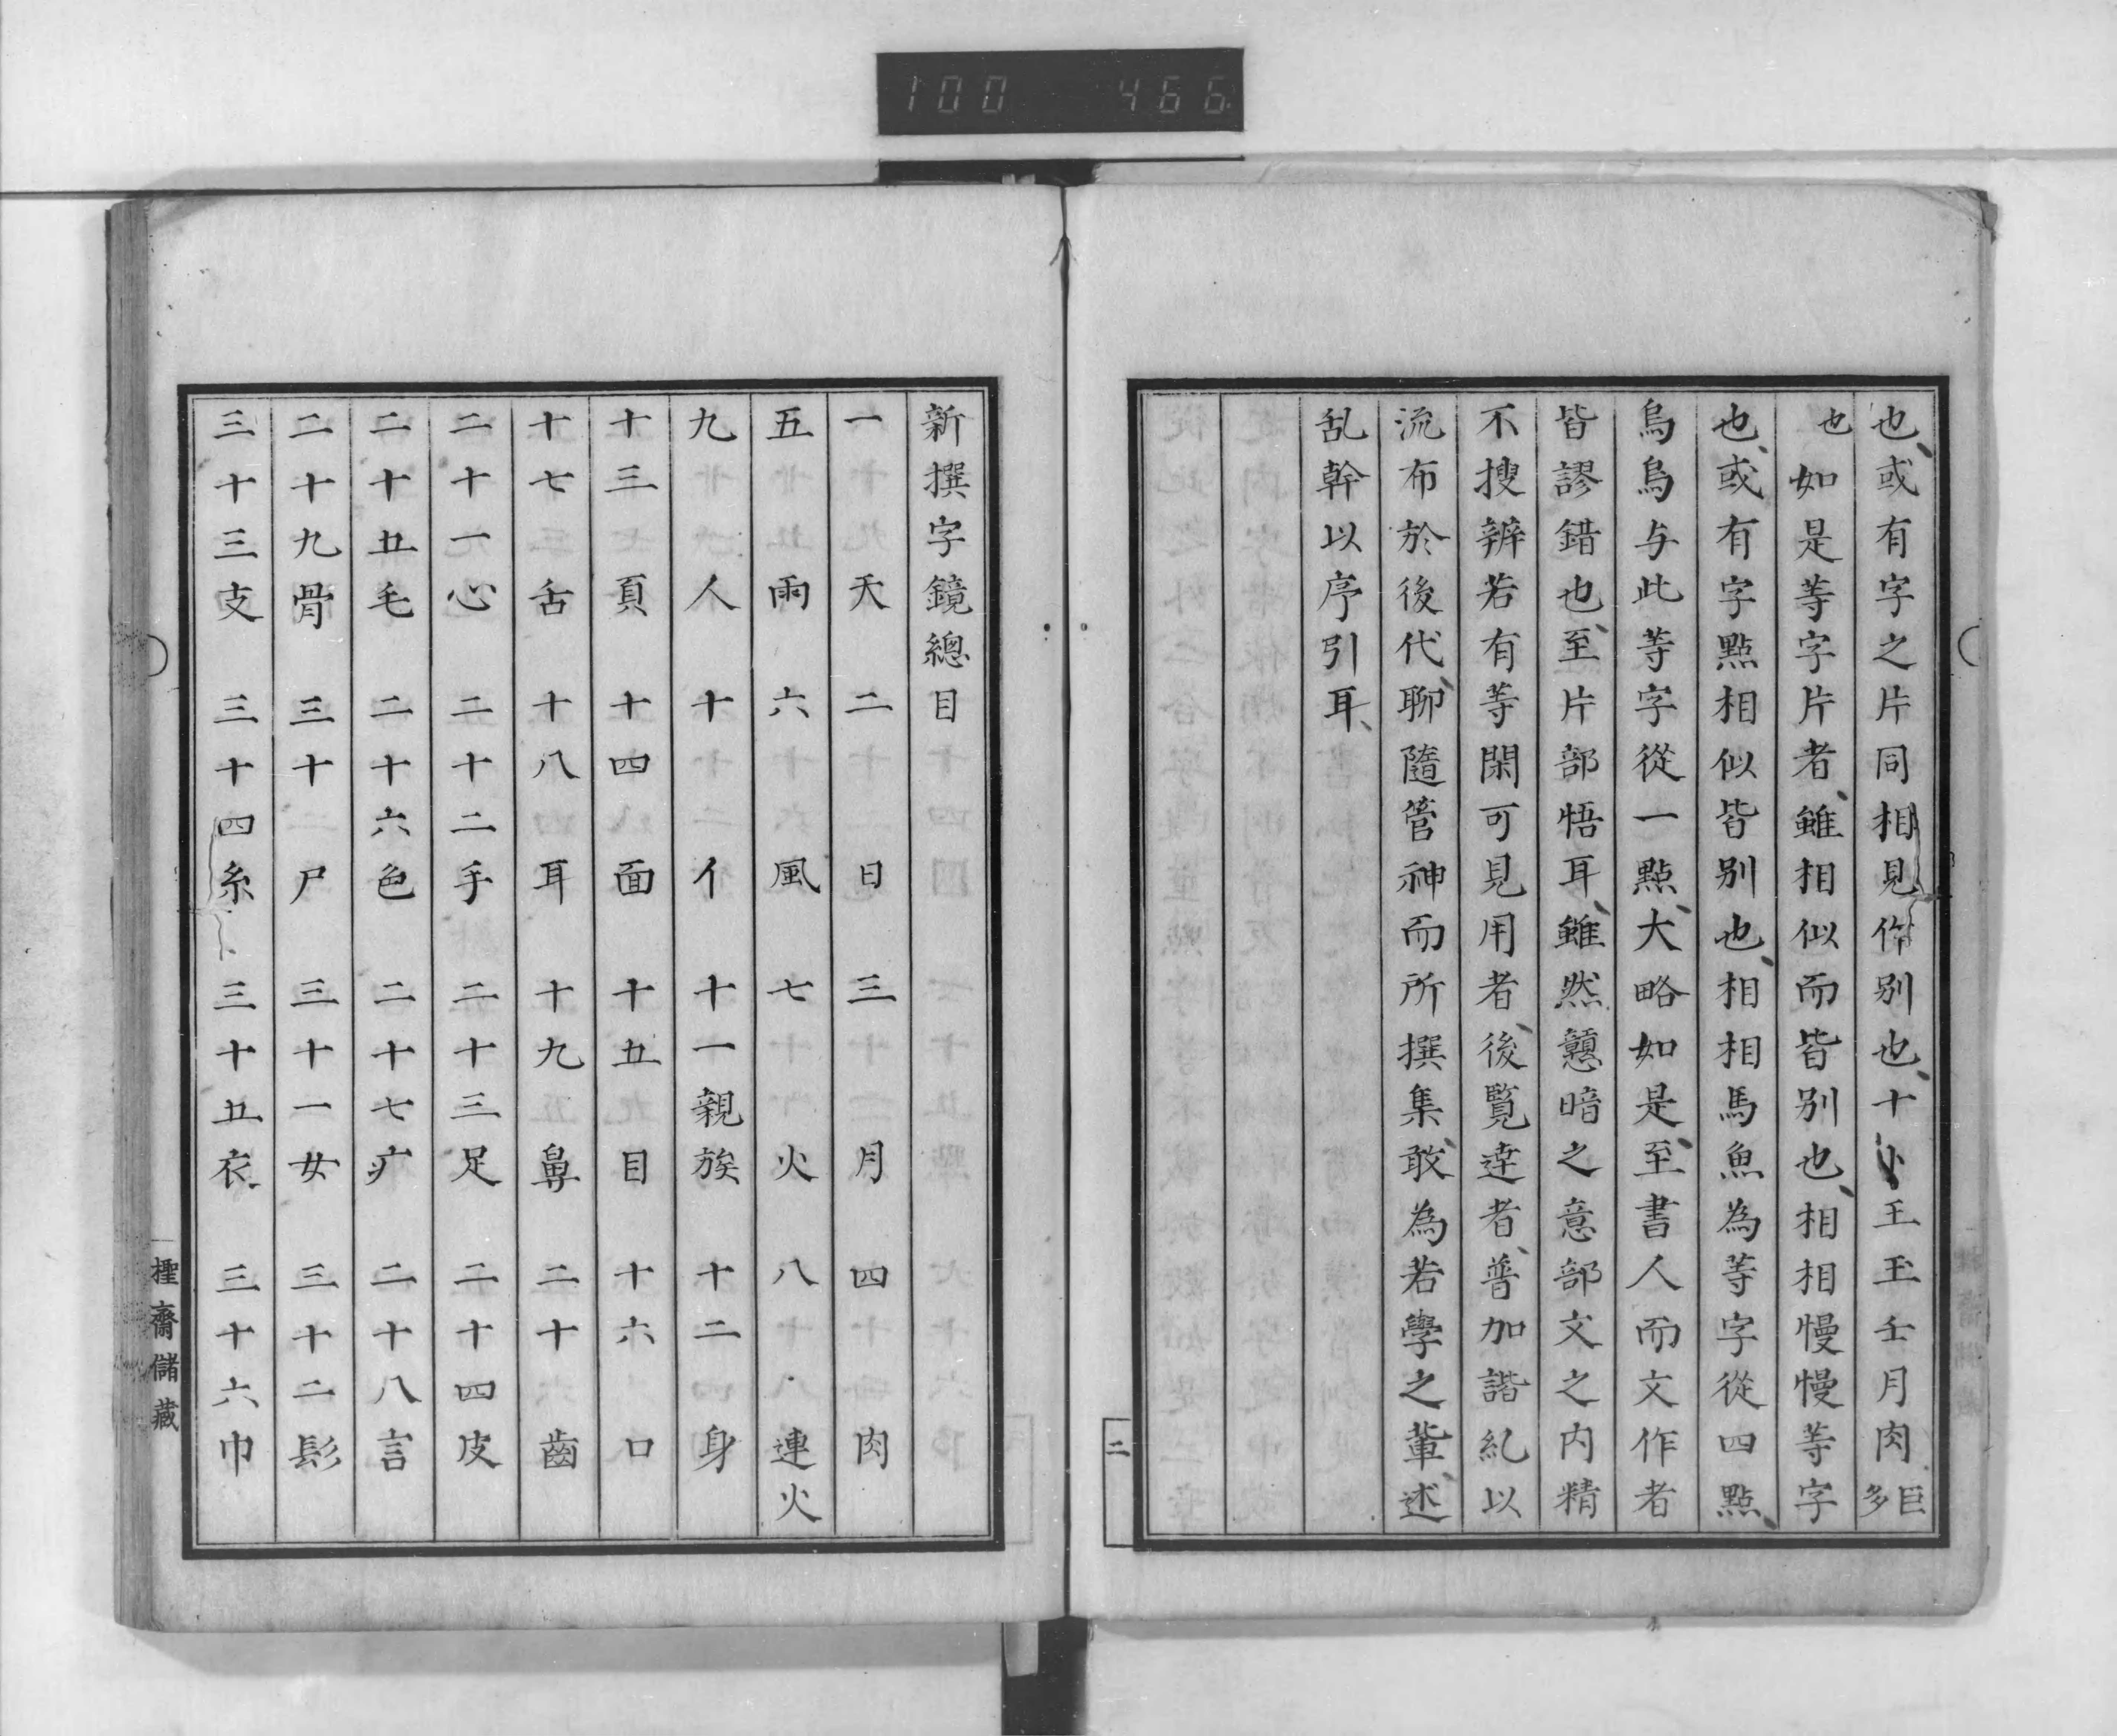 100 466
也或有字之片同相見作別也十忄王玉壬月肉巨多
也如是等字片者雖相似而皆別也相相慢慢等字
也或有字點相似皆別也相相馬魚為等字從四點
烏烏与此等字從一點大略如是至書人而文作者
皆謬錯也至片部悟耳雖然戇暗之意部文之内精
不搜辨若有等閑可見用者後覽達者普加諧糺以
流布於後代聊隨管神而所撰集敢為若學之輩述
乱幹以序引耳
二
新撰字鏡總目
一天 二日 三月 四肉
五雨 六風 七火 八連火
九人 十亻 十一親族 十二身
十三頁 十四面 十五目 十六口
十七舌 十八耳 十九鼻 二十齒
二十一心 二十二手 二十三足 二十四皮
二十五毛 二十六色 二十七疒 二十八言
二十九骨 三十尸 三十一女 三十二髟
三十三支 三十四糸 三十五衣 三十六巾
檉齋儲藏